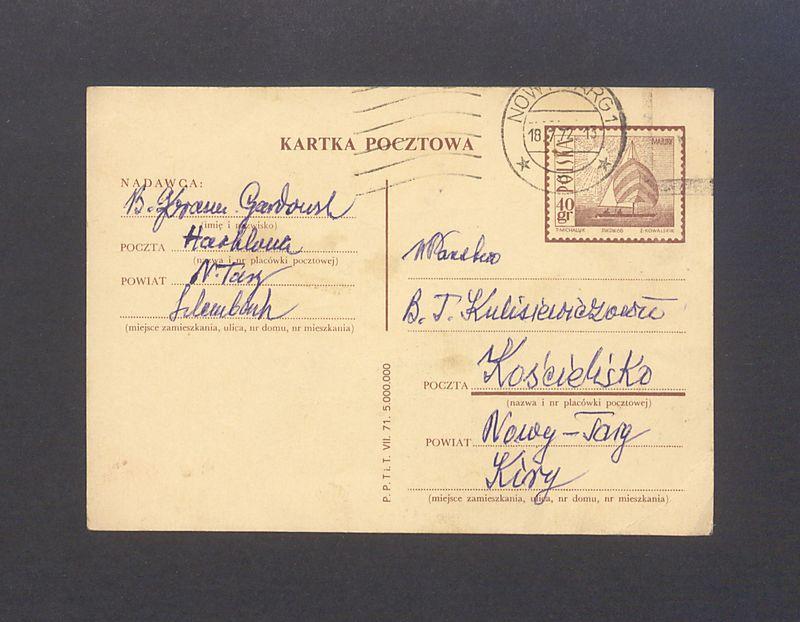 NOWY TARG 1
18.7.72-13
KARTKA POCZTOWA
POLSKA
MAZURY
40
gr
T. MICHALUK
Z. KOWALSKI R.
NADAWCA:
B.
(imię i nazwisko)
POCZTA Harklowa
(nazwa i nr placówki pocztowej)
POWIAT N. Targ
Szlembark
(miejsce zamieszkania, ulica, nr domu, nr mieszkania)
P. P. T i T. VII. 71. 5.000.000
WPaństwo
B. T. Kulisiewiczowie
POCZTA Kościelisko
(nazwa i nr placówki pocztowej)
POWIAT Nowy-Targ
Kiry
(miejsce zamieszkania, ulica, nr domu, nr mieszkania)